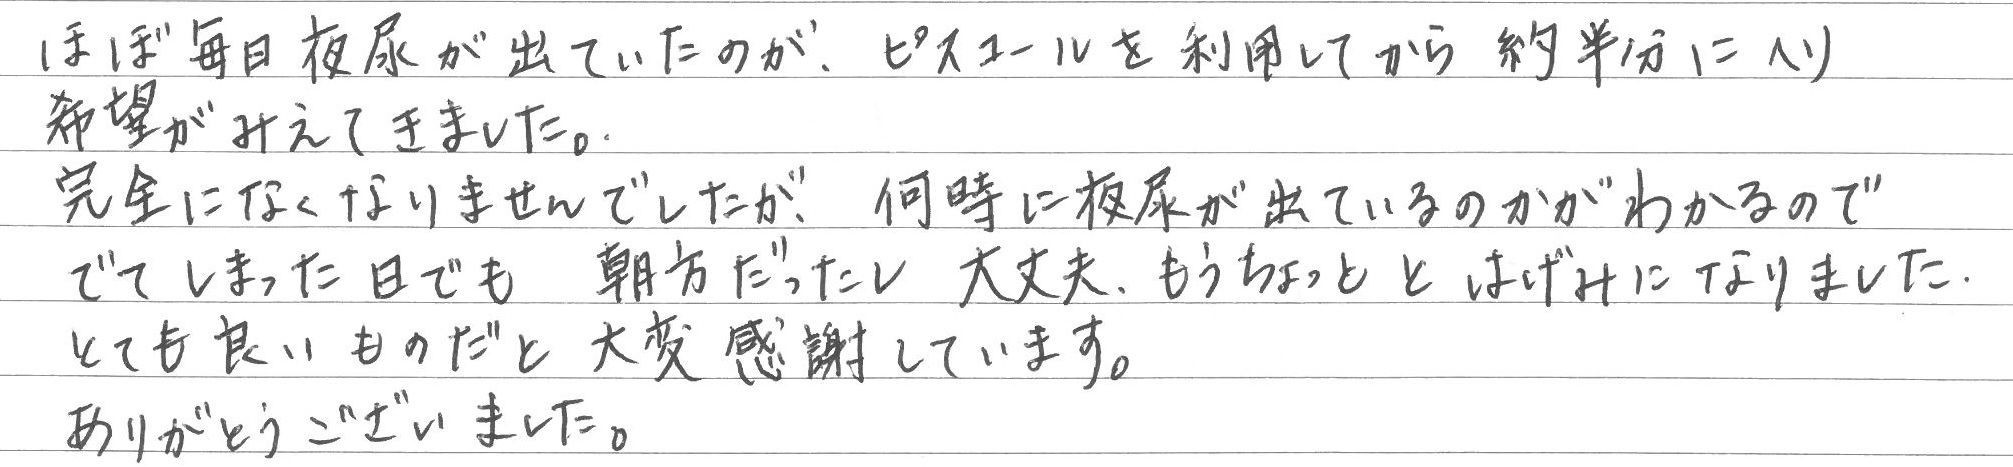 ほぼ毎日夜尿が出ていたのが、ピスコールを利用してから約半分に入り
希望がみえてきました。
完全になくなりませんでしたが、何時に夜尿が出ているのかがわかるので
でてしまった日でも 朝方だったし 大丈夫、もうちょっと とはげみになりました.
とても良いものだと大変感謝しています。
ありがとうございました。